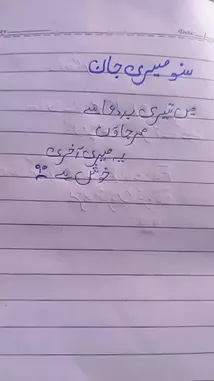 سنو میری جان
میں تیری بدعا سے
مرجاؤں
یہ میری آخری
خوش ہے